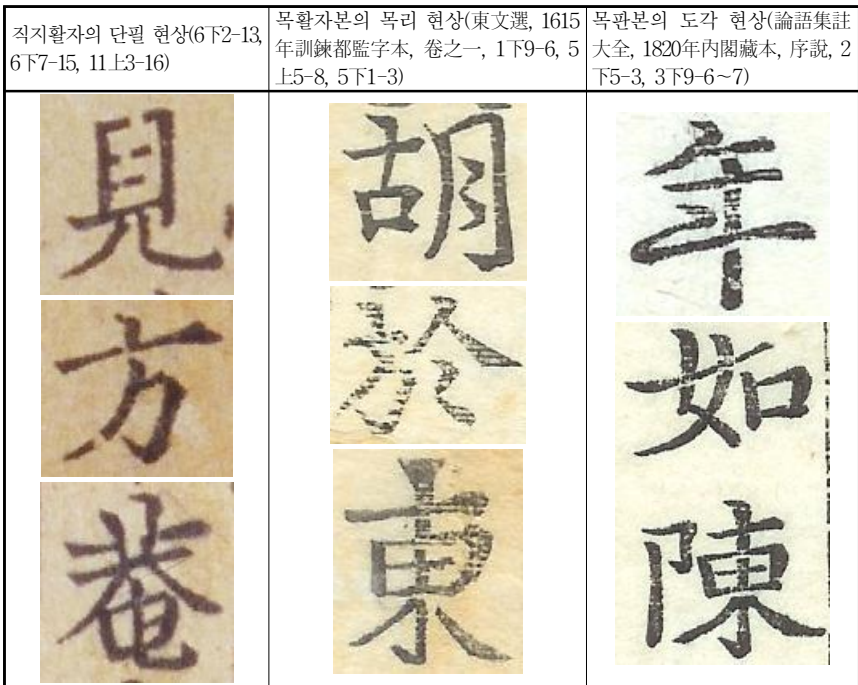 직지활자의 단필 현상(6下2-13,
6下7-15, 11上3-16)
목활자본의 목리 현상(東文選, 1615
年訓鍊都監字本, 卷之一, 1下9-6, 5
上5-8, 5下1-3)
목판본의 도각 현상(論語集註
大全, 1820年內閣藏本, 序說, 2
下5-3, 3下9-6~7)
見
方
菴
胡
於
東
年
如
陳